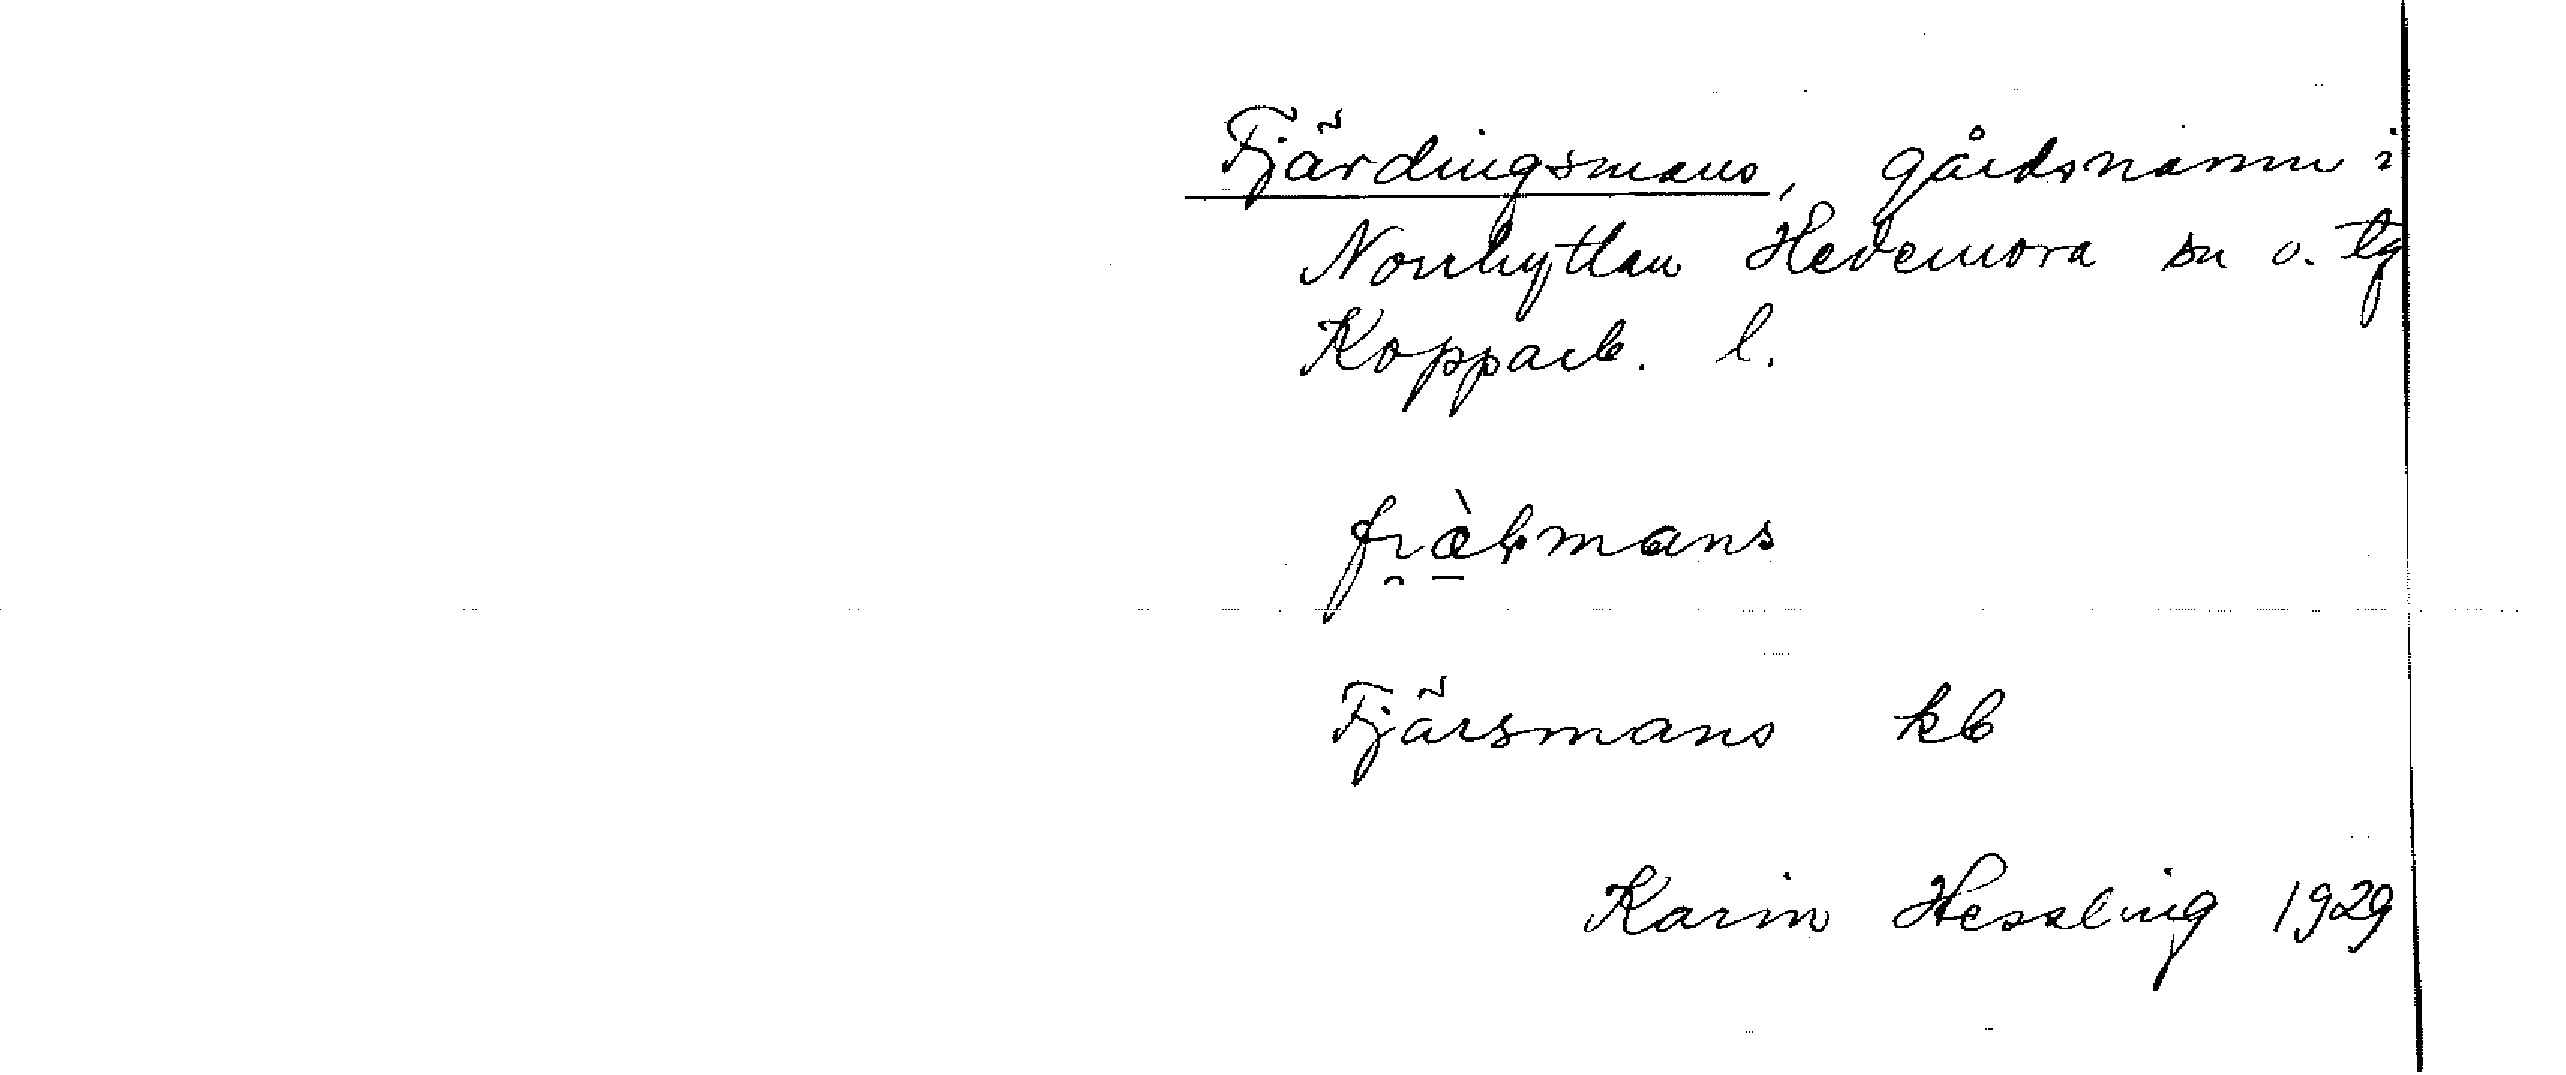 Fjärdingsmans, gårdsnamn i
Norrhyttan Hedemora sn o. tg
Kopparb. l.
Fjärsmans kb
Karin Hessling 1929